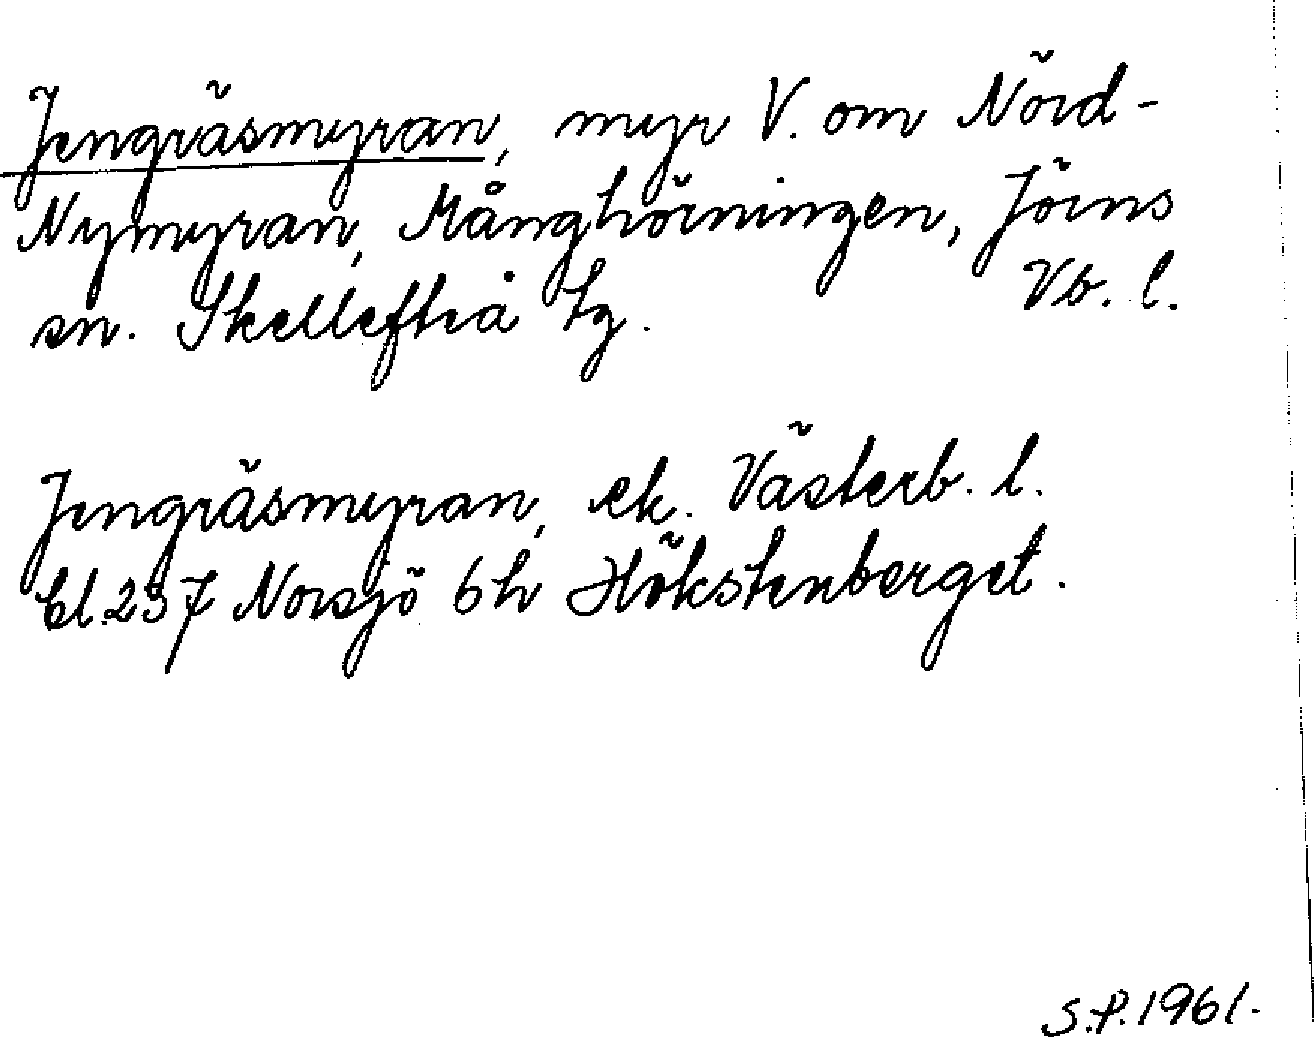 Jengräsmyran, myr V. om Nörd-
Nymyran, Månghörningen, Jörns
sn. Skellefteå tg. Vb. l.
Jengräsmyran, ek. Västerb. l.
bl. 237 Norsjö 6h Hökstenberget.
S.P. 1961.